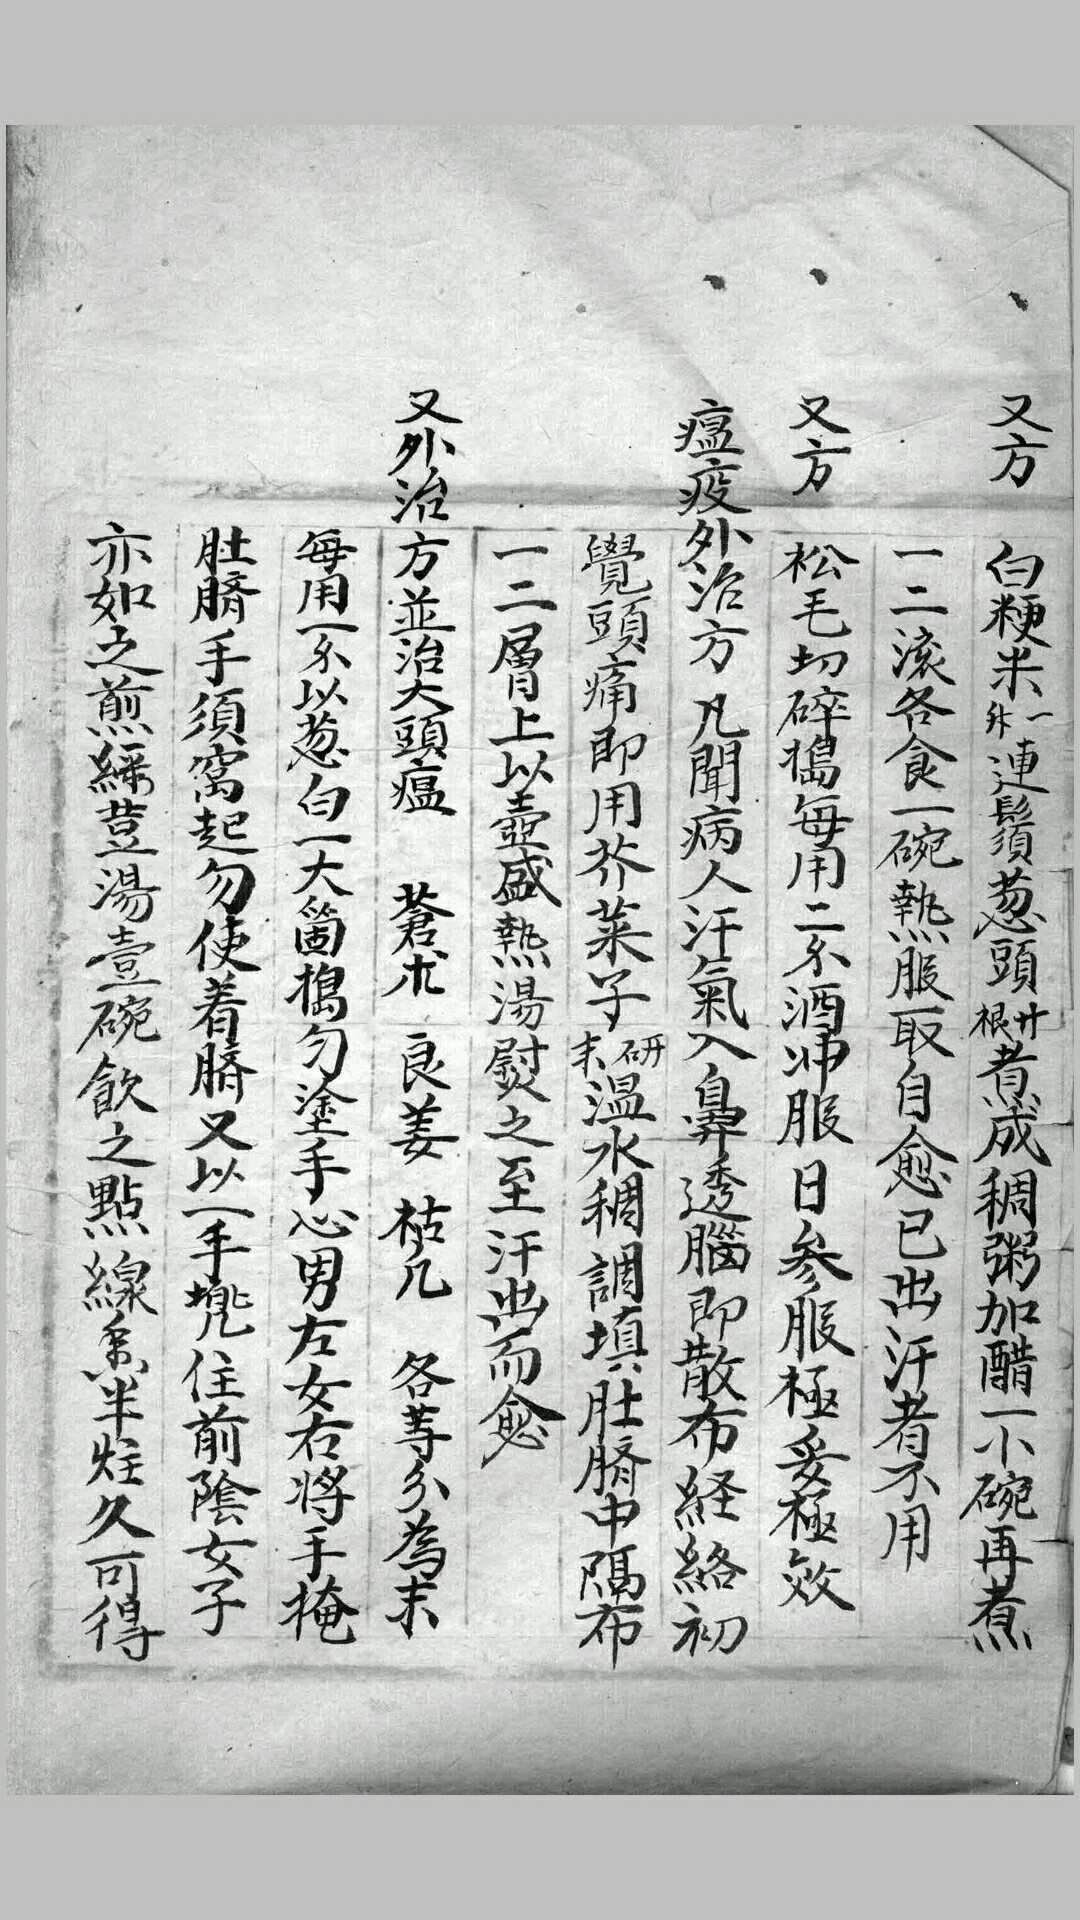 又方 白粳米一升連鬚葱頭廿根煮成稠粥加醋一小碗再煮
一二滚各食一碗熱服取自愈已出汗者不用
又方 松毛切碎搗每用二不酒冲服日參服極妥極效
瘟疫外治方 凡聞病人汗氣入鼻透腦即散布経絡初
覺頭痛即用芥菜子研末温水稠調填肚臍中隔布
一二層上以壺盛熱湯熨之至汗出而愈
又外治方並治大頭瘟 蒼朮 良姜 枯凡 各等分為末
每用一不以葱白一大箇搗勻塗手心男左女右將手掩
肚臍手須窩起勿使着臍又以一手兠住前陰女子
亦如之煎綠荳湯壹碗飲之點線香半炷久可得